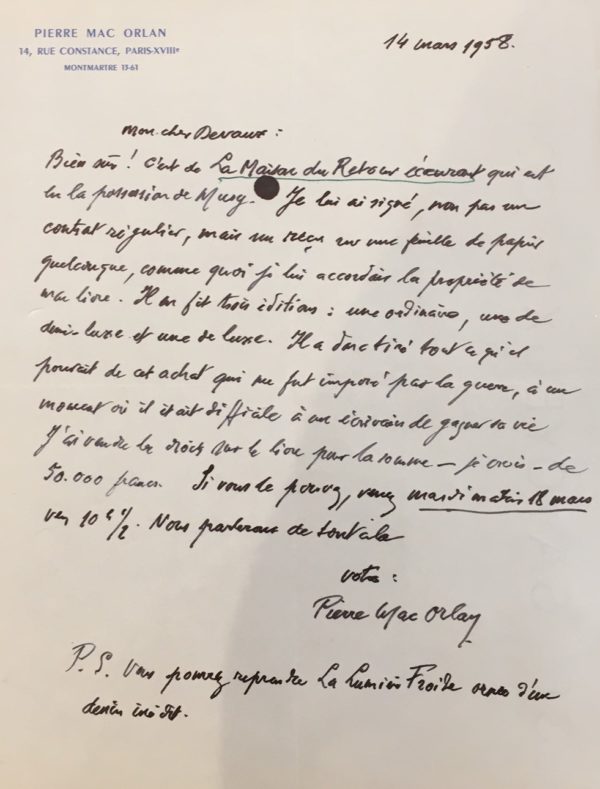 PIERRE MAC ORLAN
14, RUE CONSTANCE, PARIS-XVIIIe
MONTMARTRE 13-61
14 mars 1958.
Mon cher Devaux :
Bien sûr ! c'est de La Maison du Retour écœurant qui est
en la possession de Musy. Je lui ai signé, non pas un
contrat régulier, mais un reçu sur une feuille de papier
quelconque, comme quoi je lui accordais la propriété de
mon livre. Il en fit trois éditions : une ordinaire, une de
demi-luxe et une de luxe. Il a donc tiré tout ce qu'il
pouvait de cet achat qui me fut imposé par la guerre, à un
moment où il était difficile à un écrivain de gagner sa vie
J'ai vendu les droits sur le livre pour la somme — je crois — de
50.000 francs. Si vous le pouvez, venez mardi matin 18 mars
vers 10 h 1/2. Nous parlerons de tout cela
votre :
Pierre Mac Orlan
P.S. Vous pouvez reprendre La Lumière Froide ornée d'un
dessin inédit.